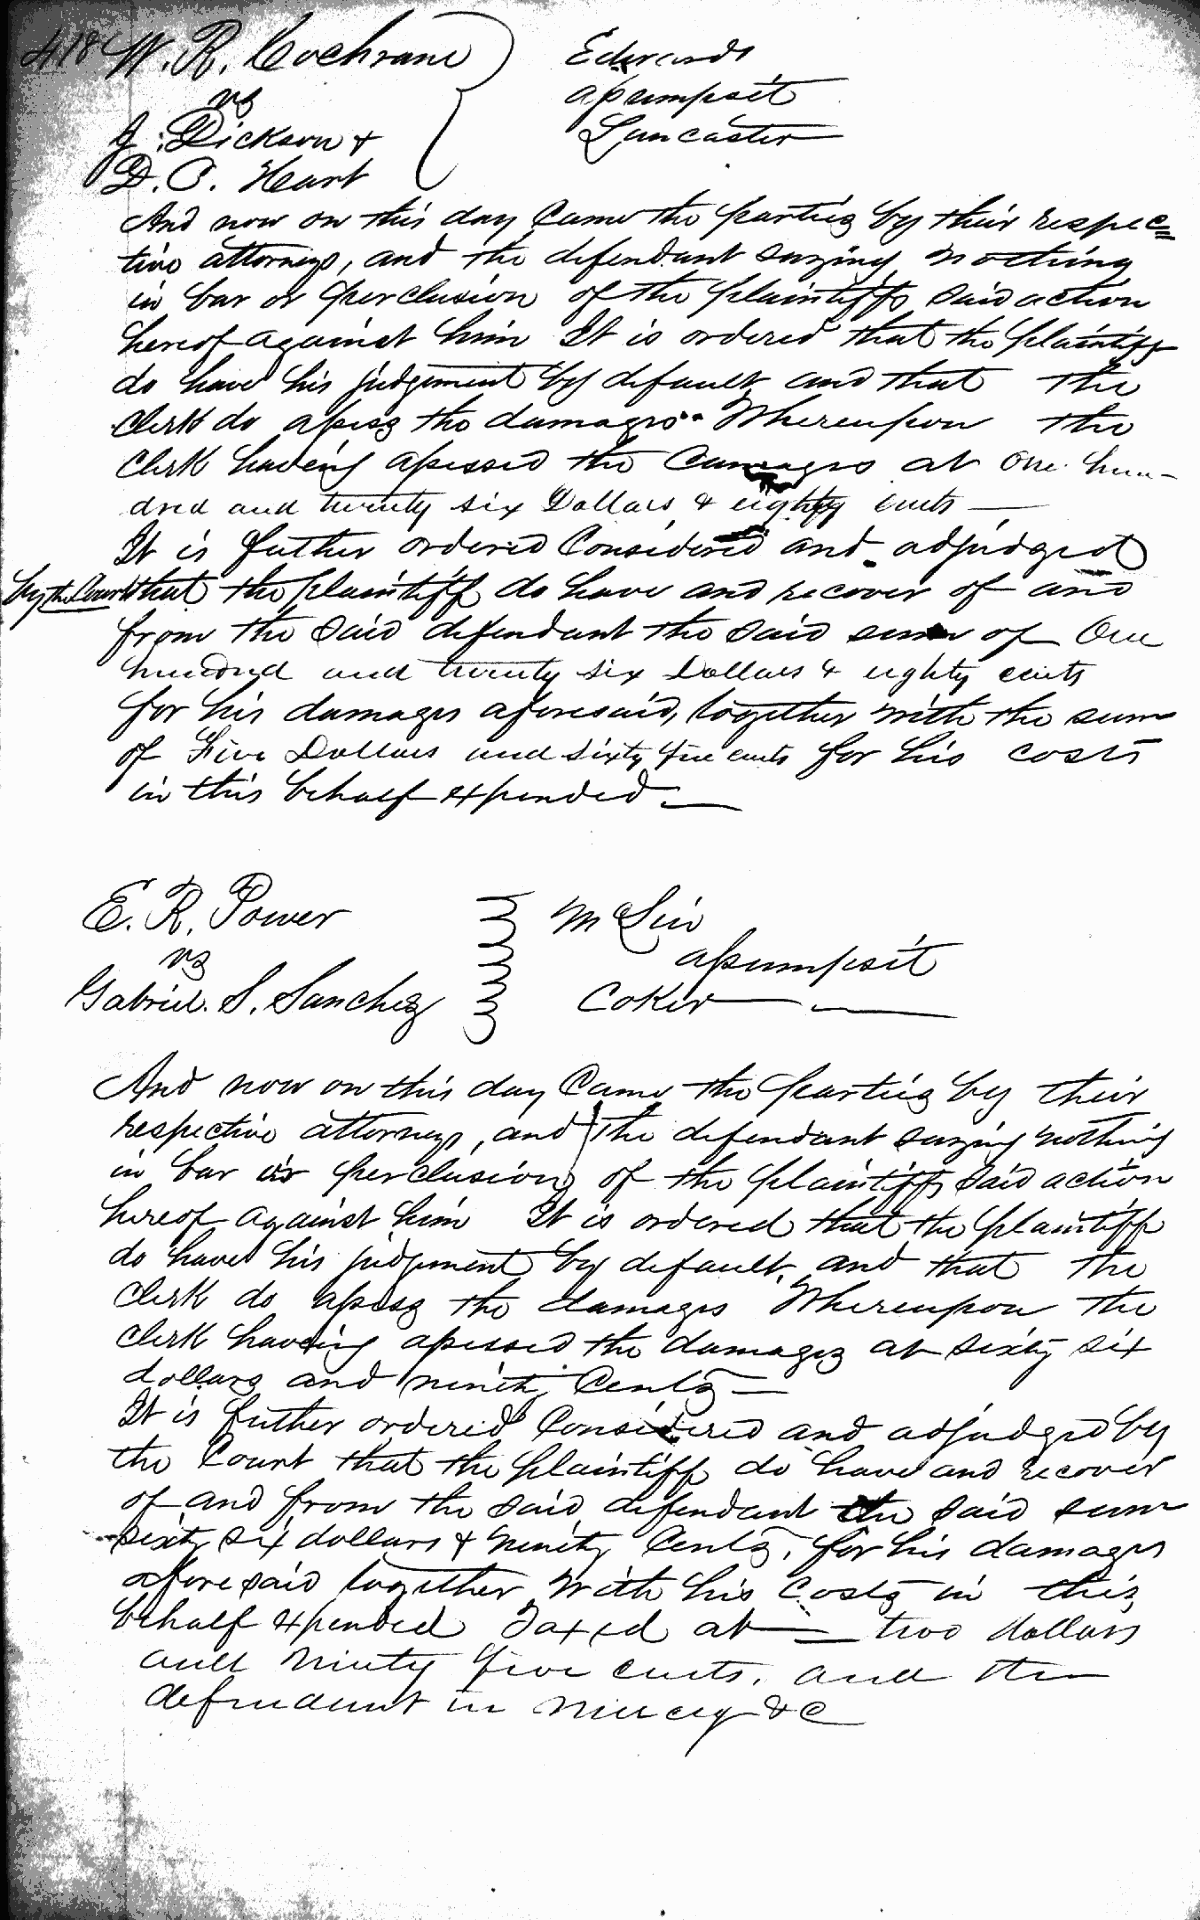 418 W. R. Cochrane Edwards
vs assumpsit
J. Dickson & Lancaster
D. C. Heart
And now on this day Came the parties by their respec=
tive attorneys, and the defendant saying nothing
in bar or perclusion of the plaintiffs said action
hereof against him It is ordered that the plaintiff
do have his judgement by default and that the
clerk do assess the damages.. Whereupon the
clerk having assessed the damages at one hun-
dred and twenty six Dollars & eighty cents —
It is futher ordered Considered and adjudged
by the Court that the plaintiff do have and recover of and
from the said defendant the said sum of One
hundred and twenty six Dollars & eighty cents
for his damages aforesaid, together with the sum
of Five Dollars and sixty five cents for his costs
in this behalf expended.—
E. R. Power McLin
vs assumpsit
Gabriel. S. Sanchez Coker
And now on this day Came the parties by their
respective attorneys, and the defendant saying nothing
in bar or perclusion of the plaintiffs said action
hereof against him It is ordered that the plaintiff
do have his judgment by default, and that the
clerk do assess the damages Whereupon the
clerk having assessed the damages at sixty six
dollars and ninety Cents —
It is futher ordered Considered and adjudged by
the Court that the plaintiff do have and recover
of and from the said defendant the said sum
sixty six dollars & ninety Cents, for his damages
aforesaid together with his Costs in this
behalf expended Taxed at — two dollars
and ninty five cents, and the
defendant in mercy &c